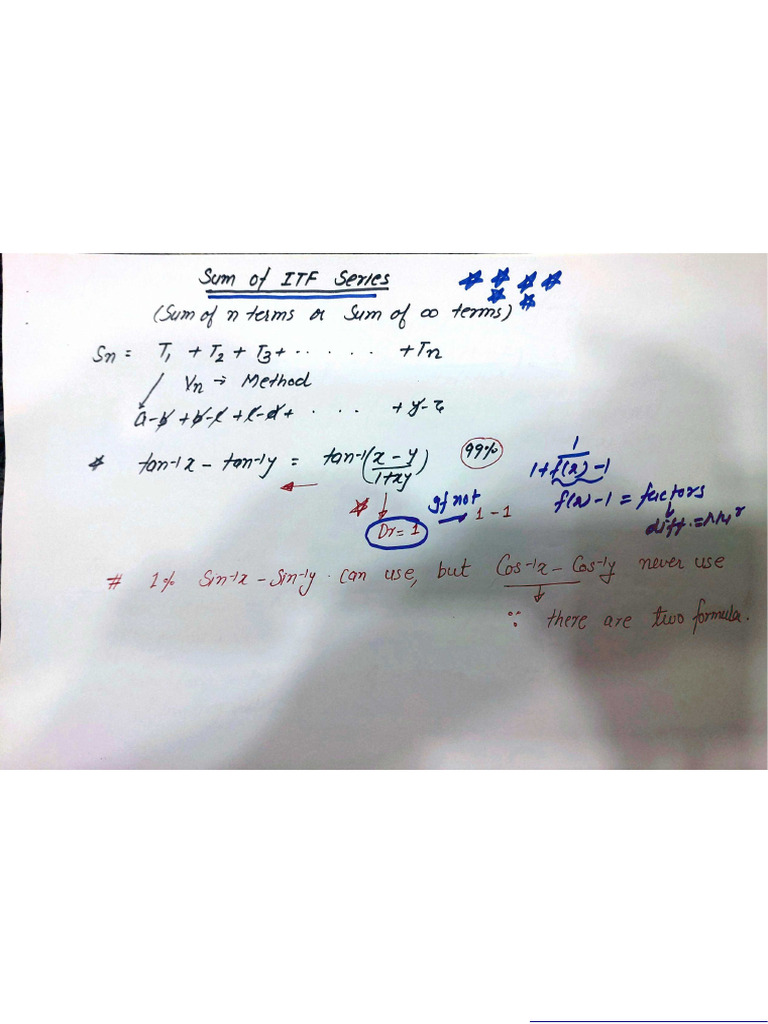 Sum of ITF Series
(Sum of n terms or Sum of ∞ terms)
Sn = T1 + T2 + T3 + ······ + Tn
Vn → Method
a-b+b-c+c-d+ ···· + y-z
* tan-1x - tan-1y = tan-1(x-y/1+xy) 99%
1
1+f(x)-1
f(x)-1 = factors
diff. = Nur
Dr=1 If not → 1-1
# 1% Sin-1x - Sin-1y can use, but Cos-1x - Cos-1y never use
∵ there are two formula.